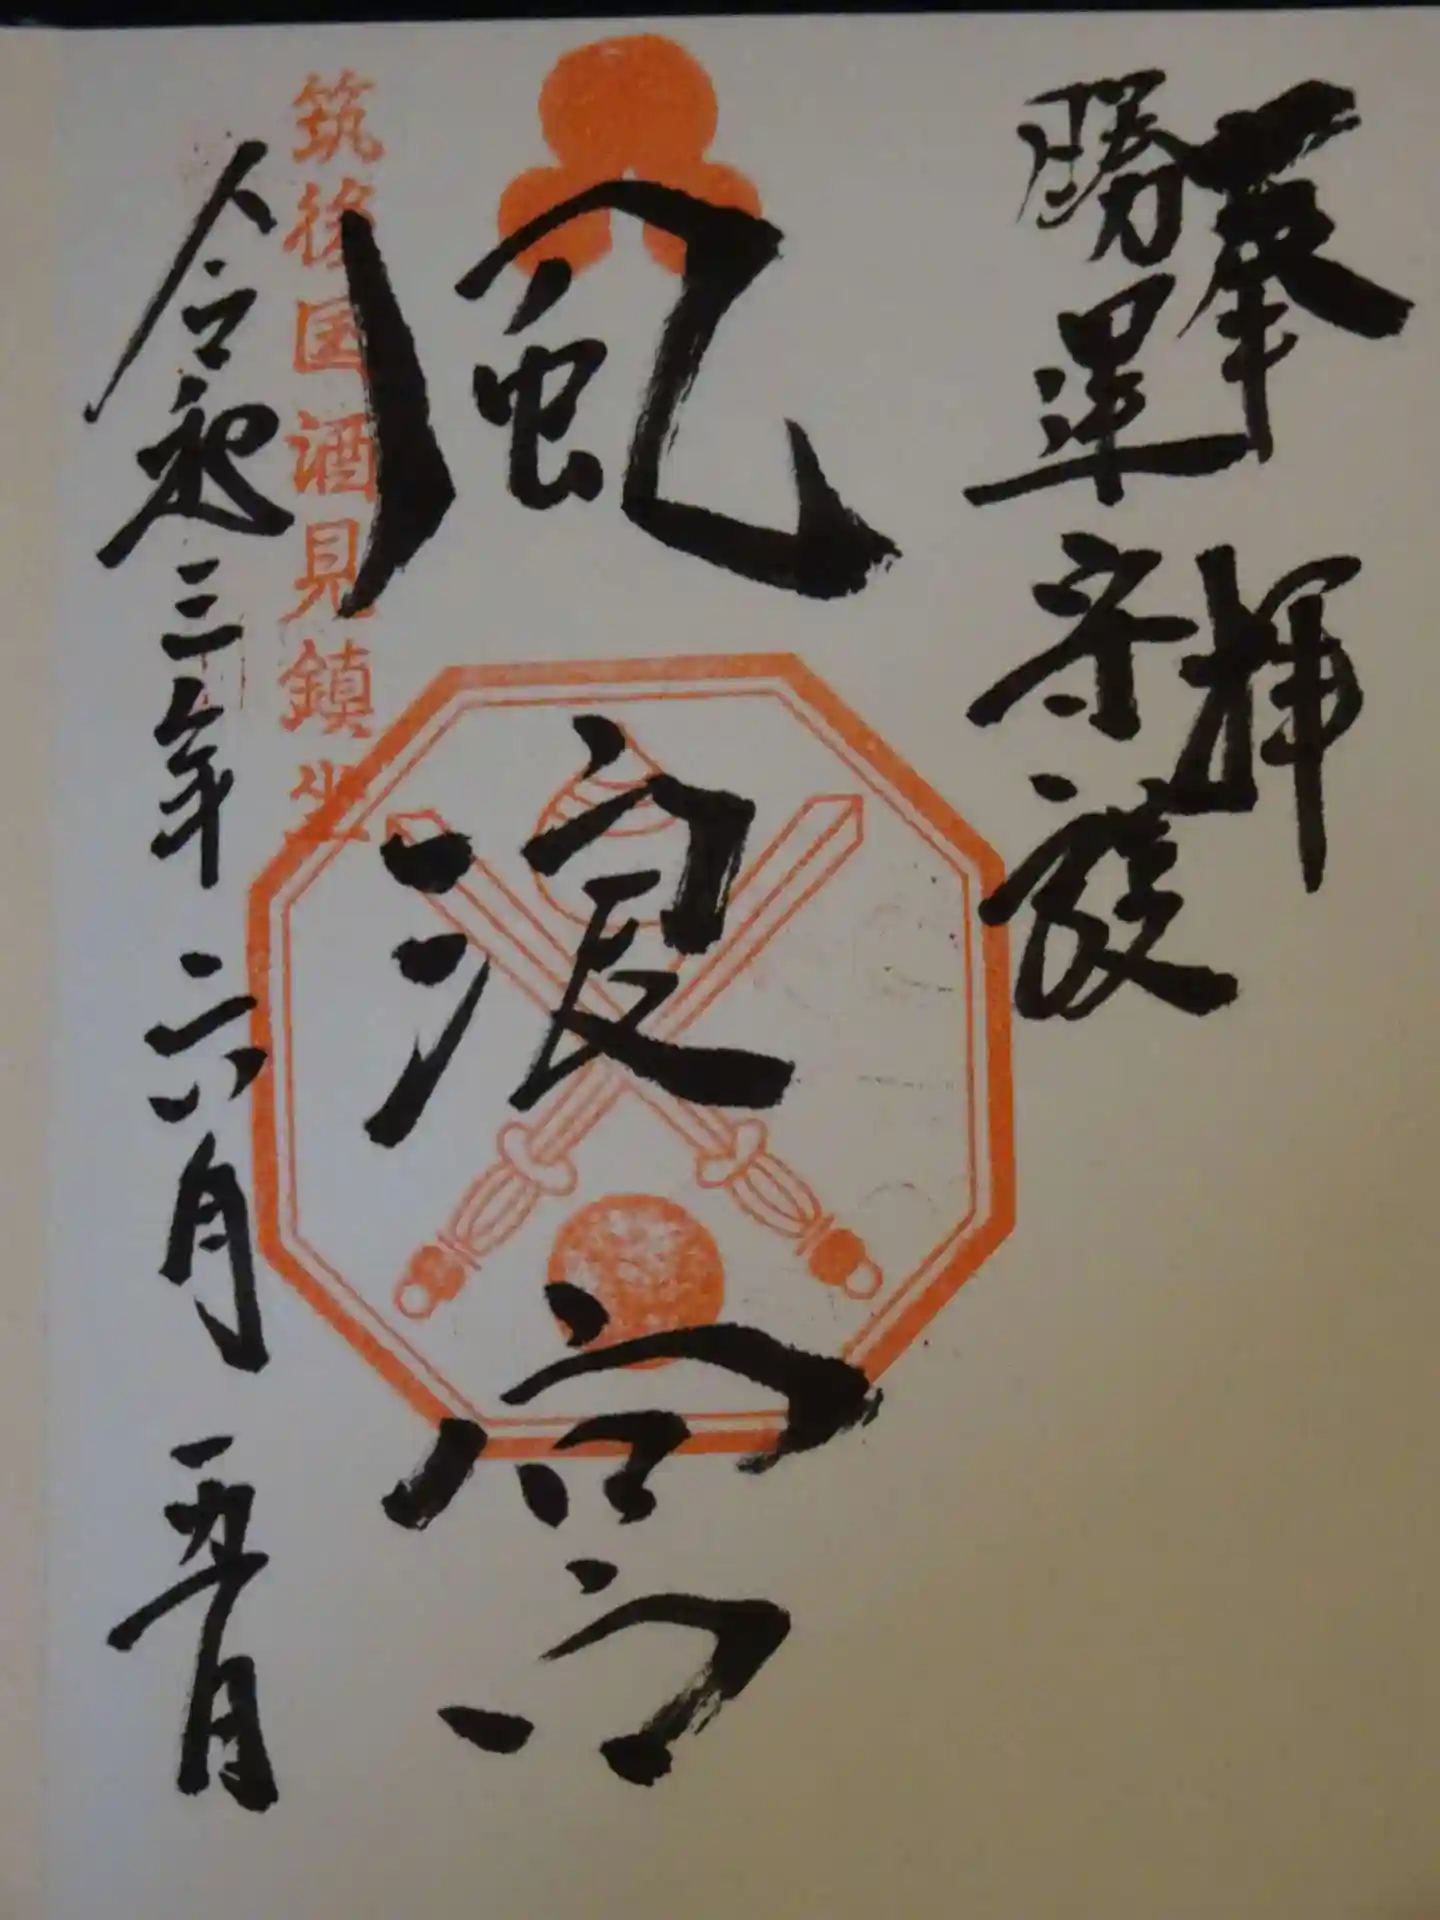 奉拝
勝運守護
風浪宮
筑後国酒見鎮坐
令和三年六月五日